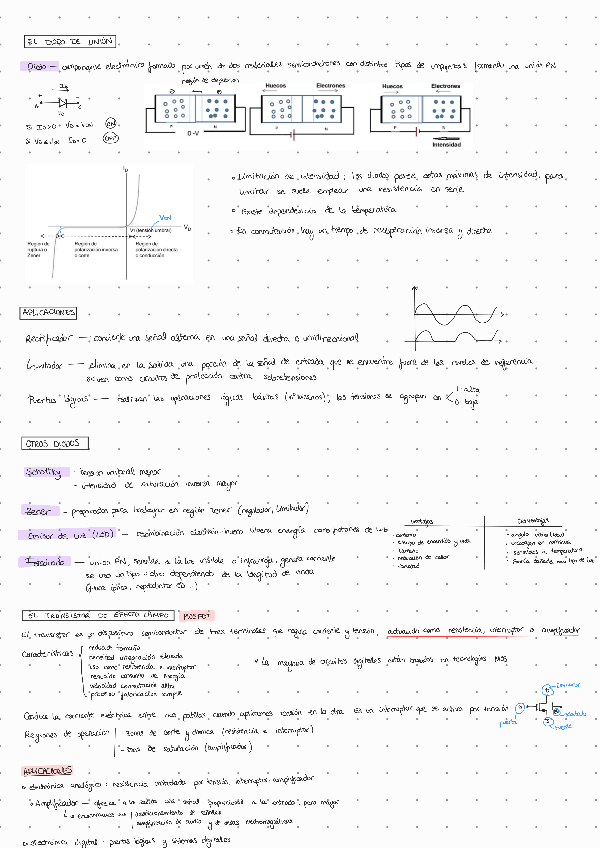 EL DIODO DE UNIÓN
Diodo — componente electrónico formado por unión de dos materiales semiconductores con distintos tipos de impurezas formando una unión PN
región de depleción
Huecos Electrones
Huecos Electrones
P N
P N
P N
0 -V
Intensidad
A
Si ID>0 - VD =
ON
ID=0
OFF
ID
VON
VD
Vγ (tensión umbral)
Región de ruptura o Zener
Región de polarización inversa o corte
Región de polarización directa o conducción
• Limitación de intensidad: los diodos poseen ciertas máximas de intensidad, para
limitar se suele emplear una resistencia en serie
• Existe dependencia de la temperatura
• En conmutación, hay un tiempo de recuperación inversa y directa
APLICACIONES
Rectificador — convierte una señal alterna en una señal directa o unidireccional
Limitador — elimina, en la salida, una porción de la señal de entrada que se encuentre fuera de los niveles de referencia
sirven como circuitos de protección contra sobretensiones
Puertas lógicas — realizan las operaciones lógicas básicas, las tensiones se agrupan en
1- alta
0- baja
OTROS DIODOS
Schottky - tensión umbral menor
- intensidad de saturación inversa mayor
Zener - preparados para trabajar en región zener (regulador, limitador)
Emisor de luz (LED) — recombinación electrón-hueco libera energía como fotones de luz
Ventajas
Desventajas
- consumo
- tiempo de encendido y vida
- tamaño
- reducción de calor
- ángulo
- sensibles a temperatura
Fotodiodo — unión PN, sensible a la luz visible o infrarroja, genera corriente
se usa un tipo u otro dependiendo de la longitud de onda
(fibra óptica, reproductor CD...)
EL TRANSISTOR DE EFECTO CAMPO MOSFET
El transistor es un dispositivo semiconductor de tres terminales que regula corriente y tensión, actuando como resistencia, interruptor o amplificador
Características
reducido tamaño
densidad integración elevada
uso como resistencia o interruptor
reducido consumo de energía
velocidad conmutación alta
proceso fabricación simple
• La mayoría de circuitos digitales están basados en tecnologías MOS
Conduce la corriente eléctrica entre dos patillas, cuando aplicamos tensión en la otra. Es un interruptor que se activa por tensión
puerta
D
G
S
Regiones de operación
- zona de corte y óhmica (resistencia e interruptor)
- zona de saturación (amplificador)
APLICACIONES
• electrónica analógica: resistencia controlada por tensión, interruptor, amplificador
• Amplificador — ofrece a la salida una señal proporcional a la entrada, pero mayor
amplificación de audio y de ondas electromagnéticas
• electrónica digital: puertas lógicas y sistemas digitales